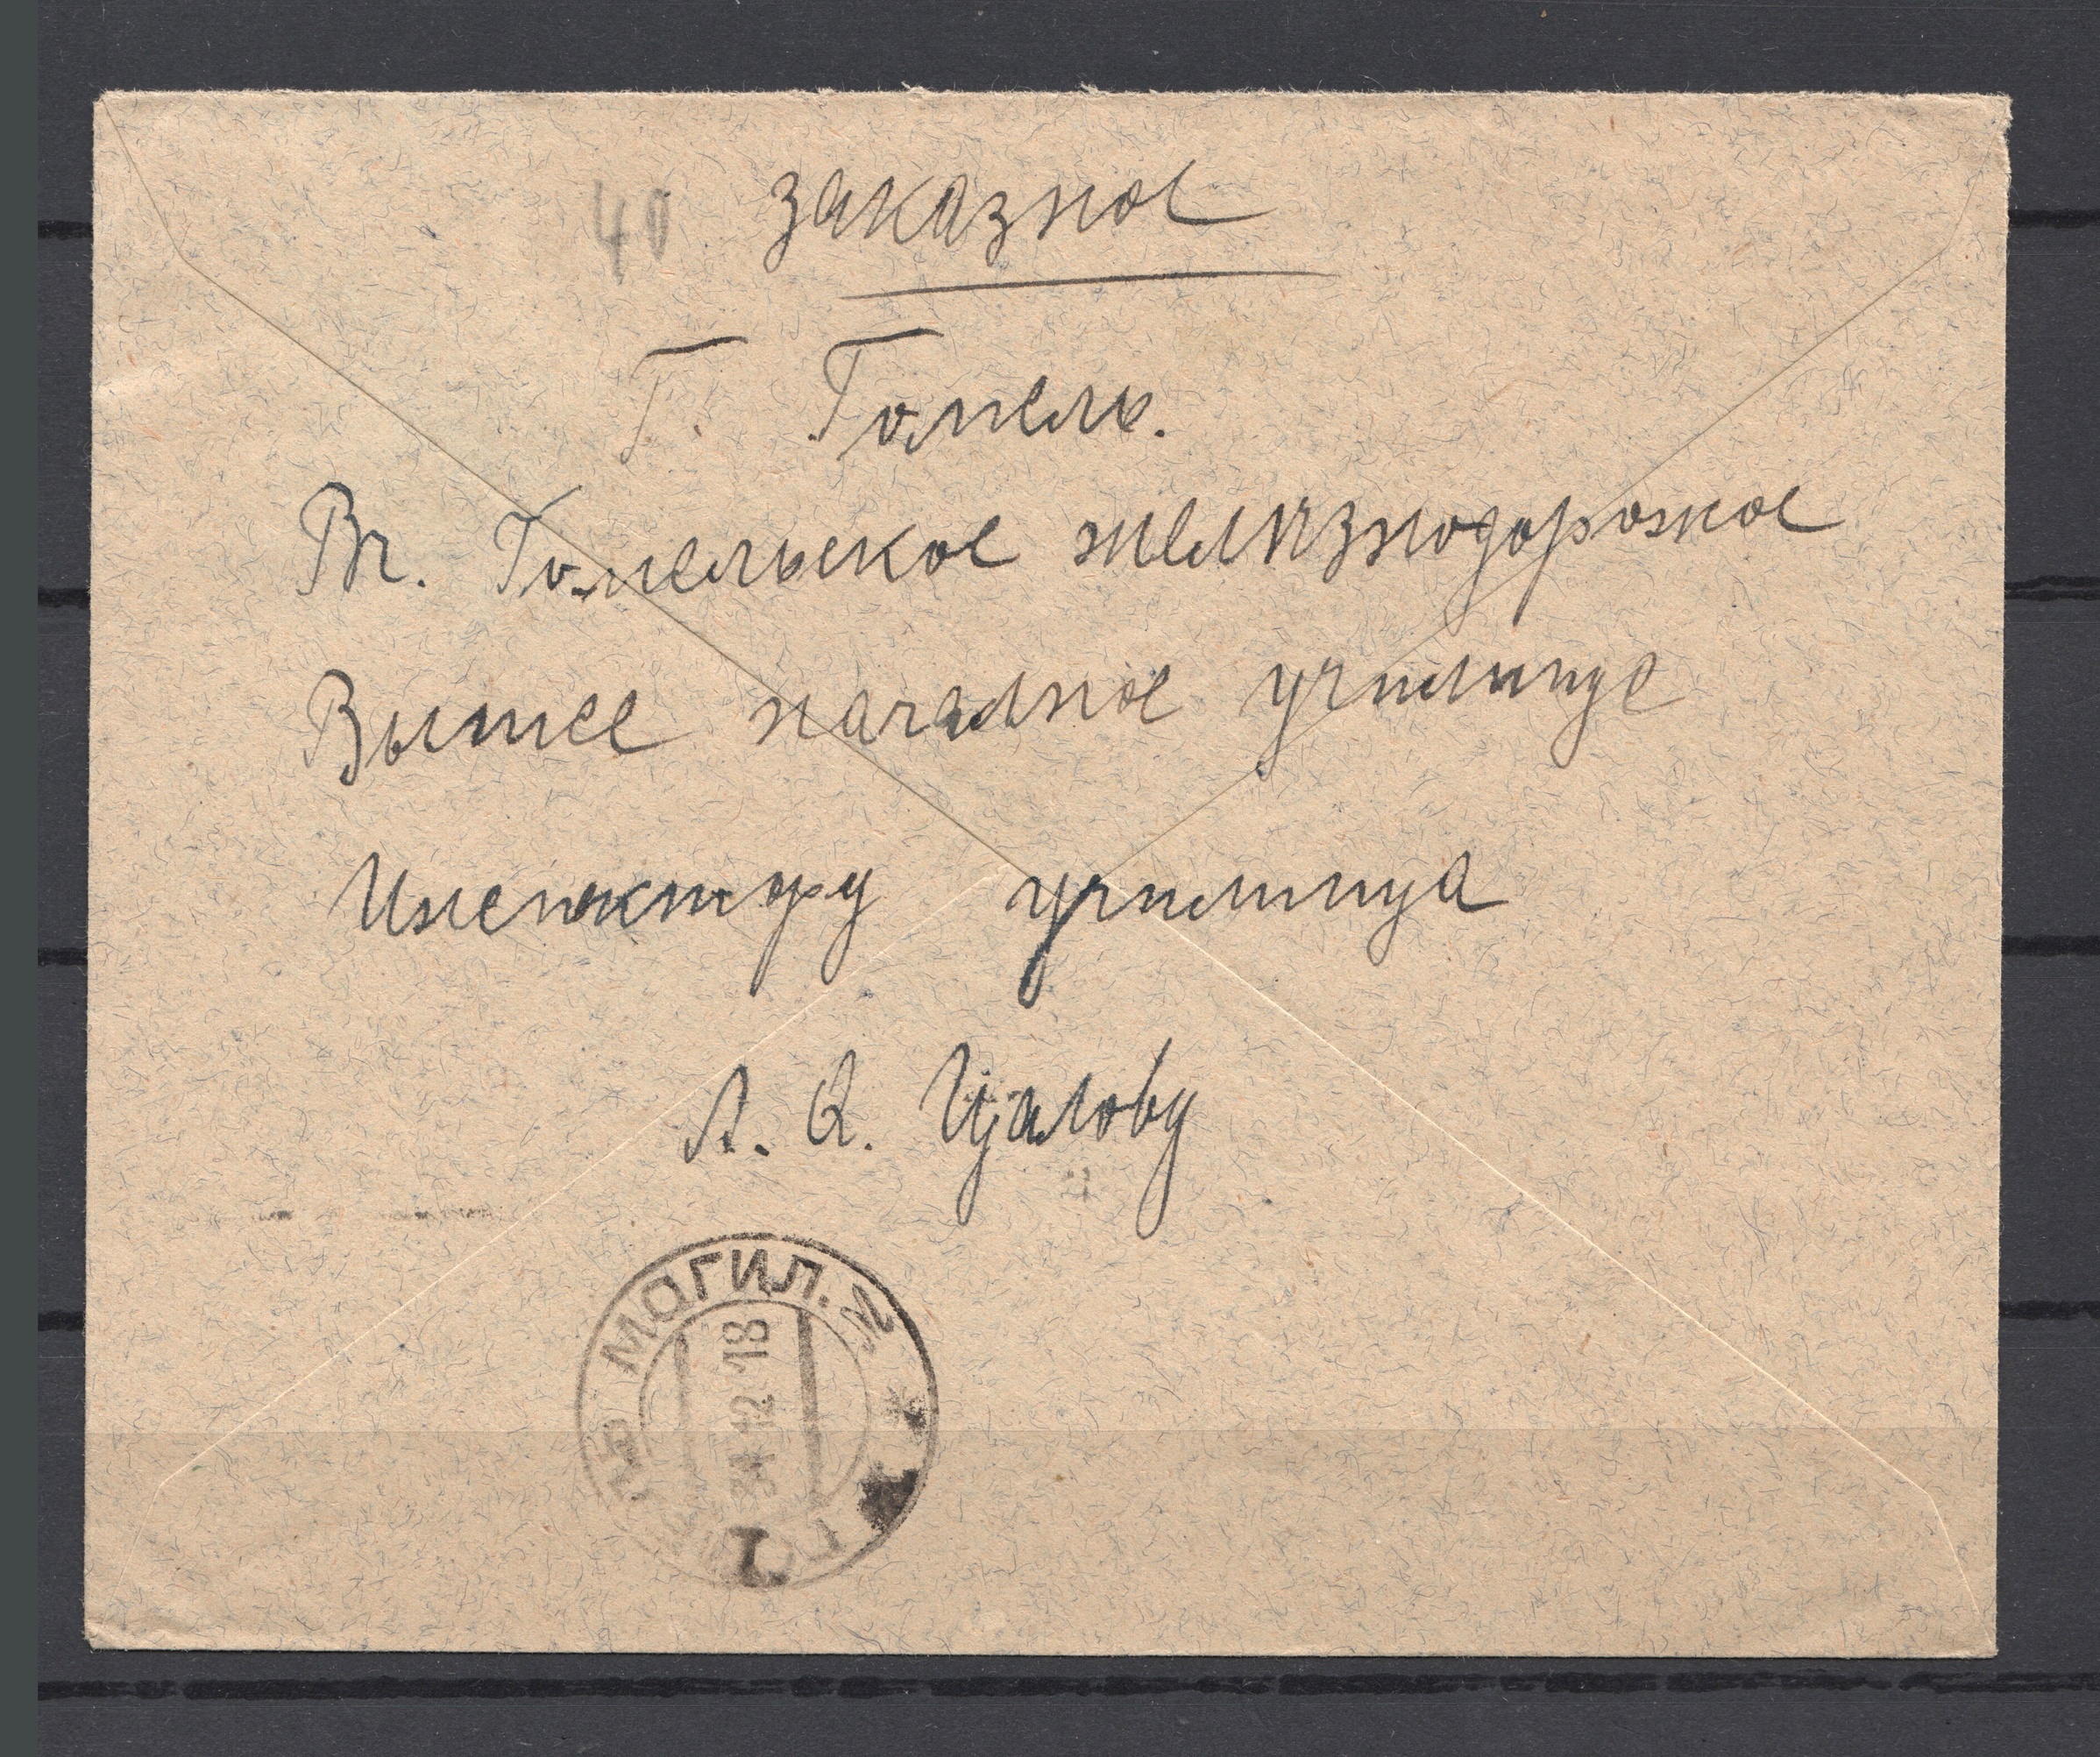 40 заказное
Г. Гомель.
Въ. Гомельское желѣзнодорожное
Высшее началное училище
Инспектору училища
А. А. Цалову
ГОМЕЛЬ МОГИЛ. 2
31 12 18
1